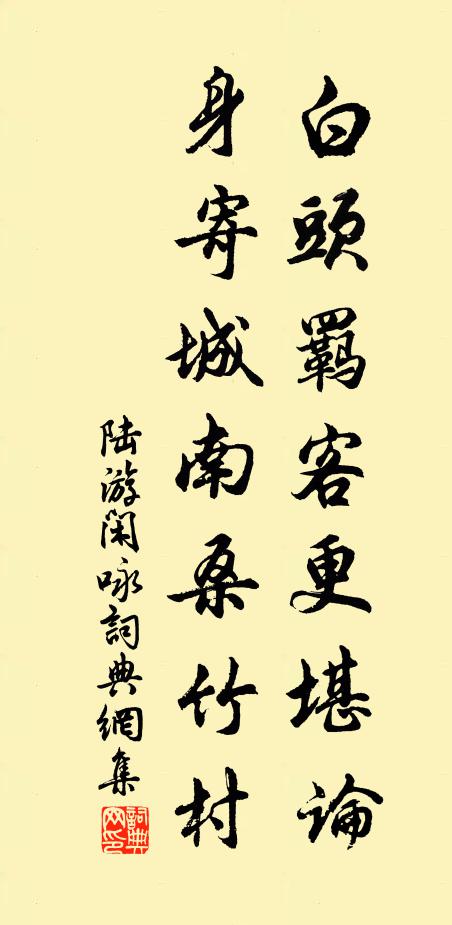 白頭羈客更堪論
身寄城南桑竹村
陸游閑咏詞典網集
詞典
网印